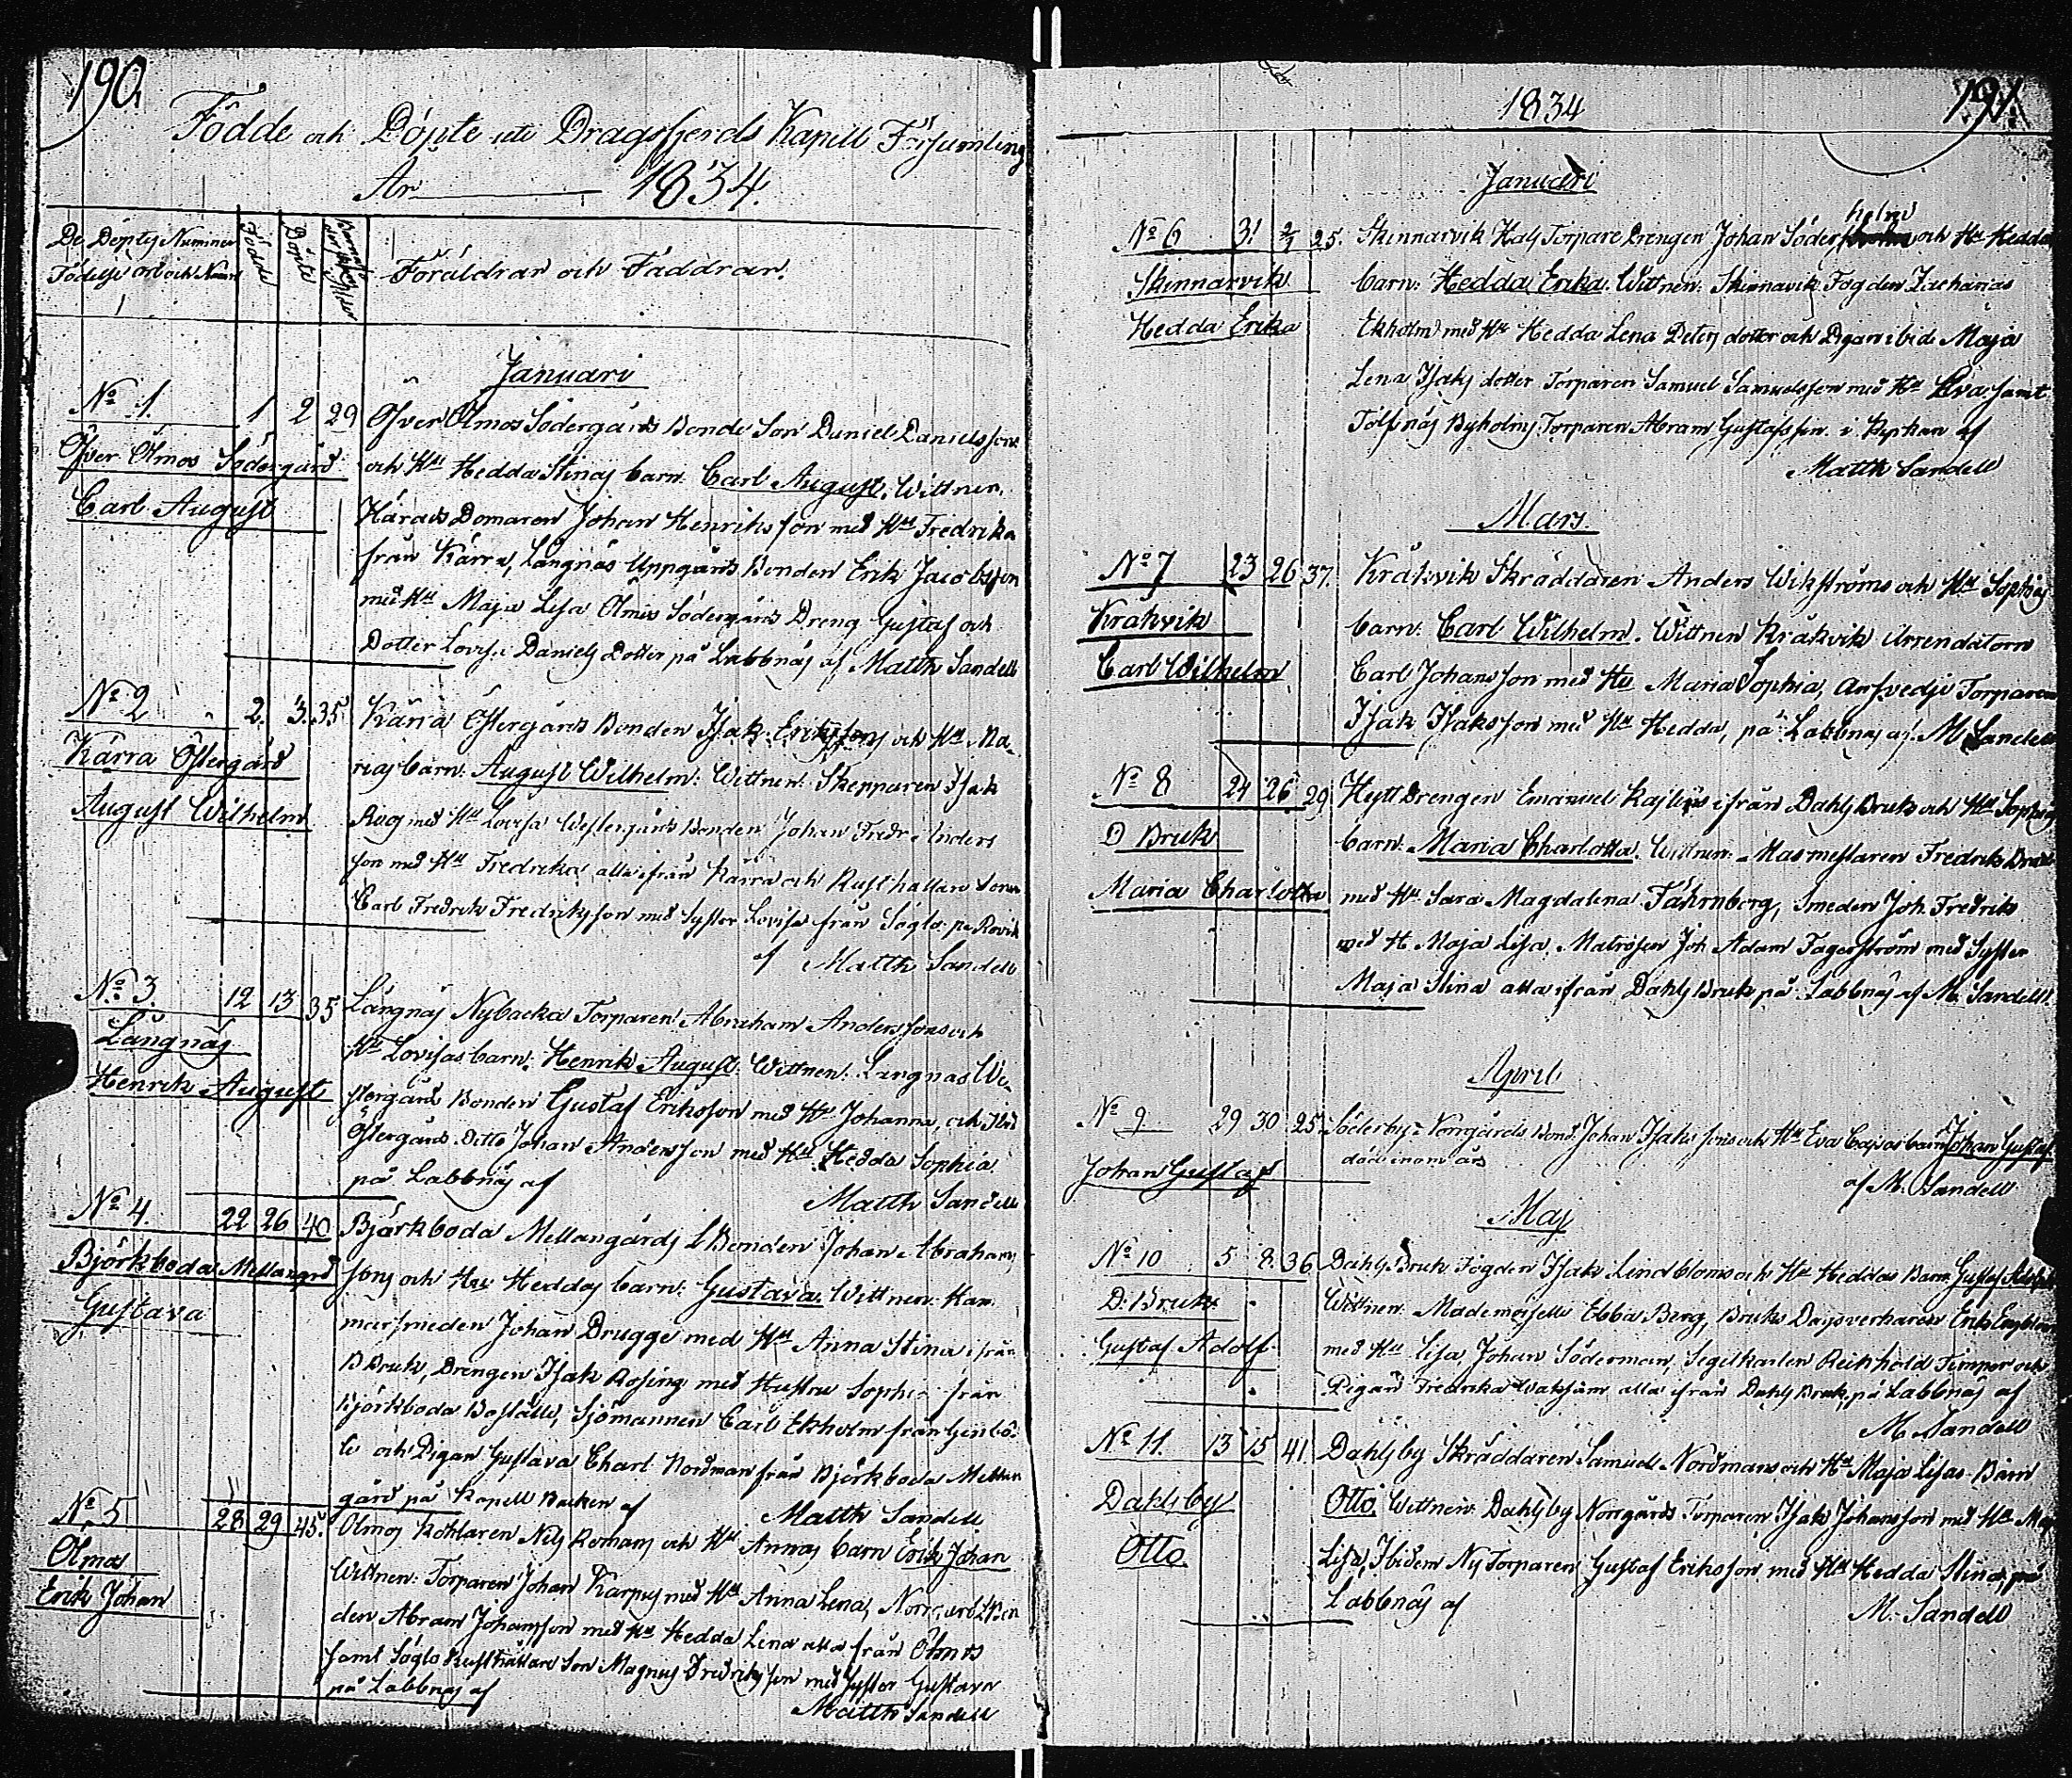 190.
Födde och Döpte uti Dragsfjerds Kapell Församling
År 1834.
De Döptes Nummer
Födelse ort och Namn
Födde
Döpte
Föräldrar och Faddrar.
Januari
No 1. 1 2 29 Öfver Ölmos Södergårds Bonde Son Daniel Danielssons
Öfver Ölmos Södergård och Hu Hedda Stinas barn: Carl August. Wittnen.
Carl August Härads Domaren Johan Henriksson med Hu Fredrika
från Kärra, Långnäs Uppgårds Bonden Erik Jacobsson
med Hu Maja Lisa Ölmos Södergårds Dreng Gustaf och
Dotter Lovisa Daniels Dotter på Labbnäs af Matth Sandell
No 2 2. 3. 35 Kärra Östergårds Bonden Isak Erikssons och Hu Ma-
Kärra Östergård rias barn: August Wilhelm: Wittnen: Skepparen Isak
August Wilhelm med Hu Lovisa Westergårds Bonden Johan Fredr Anders
son med Hu Fredrika, alla ifrån Kärra och Rusthållare Sonen
Carl Fredrik Fredriksson med Syster Lovisa från Söglö på Rövik
af Matth Sandell
No 3. 12 13 35 Långnäs Nybacka Torparen Abraham Anderssons och
Långnäs Hu Lovisas barn: Henrik August. Wittnen: Långnäs We-
Henrik August stergårds Bonden Gustaf Eriksson med Hu Johanna, och Ibid
Östergårds ditto Johan Andersson med Hu Hedda Sophia
på Labbnäs af Matth Sandell
No 4. 22 26 40 Björkboda Mellangårds Bonden Johan Abrahams
Björkboda Mellangrd sons och Hu Heddas barn: Gustava. Wittnen: Ham
Gustava marsmeden Johan Drugge med Hu Anna Stina ifrån
B Bruk, Drengen Isak Rosing med Hustru Sophia från
Björkboda Boställe, Sjömannen Carl Ekholm från Genbö-
le och Pigan Gustava Charl Nordman från Björkboda Mellan
gård på Kapell Backen af Matth Sandell
No 5 28 29 45. Ölmos Kohlaren Nils Romans och Hu Annas barn Erik Johan
Ölmos Wittnen: Torparen Johan Karpus med Hu Anna Lena, Norrgårds Bon
Erik Johan den Abram Johansson med Hu Hedda Lena alla från Ölmos
samt Söglö Rusthållare Son Magnus Fredriksson med Syster Gustava
på Labbnäs af Matth Sandell
1834
191.
Januari
No 6 31 2/2 25. Skinnarvik Hals Torpare Drengen Johan Söderholms och Hu Hedda
Skinnarvik barn: Hedda Erika. Wittnen: Skinnarvik Fogden Zacharias
Hedda Erika Ekholm med Hu Hedda Lena Peters dotter och Pigan ibid: Maja
Lena Isaks dotter Torparen Samuel Samuelsson med Hu Eva samt
Tolfsnäs Byholms Torparen Abram Gustafsson i Kyrkan af
Matth Sandell
Mars
No 7 23 26 37. Kråkvik Skräddaren Anders Wikströms och Hu Sophias
Kråkvik barn: Carl Wilhelm. Wittnen Kråkvik Arrendatorn
Carl Wilhelm Carl Johansson med Hu Maria Sophia, Ansvedje Torparen
Isak Isaksson med Hu Hedda, på Labbnäs af M Sandell
No 8 24 26 29 Hytt Drengen Emanuel ifrån Dahls Bruk och Hu Sophias
D Bruk barn: Maria Charlotta. Wittnen: Masmestaren Fredrik
Maria Charlotta med Hu Sara Magdalena Fährnborg, Smeden Joh. Fredriks
med H Maja Lisa, Matrosen Joh Adam Fagerström med Syster
Maja Stina alla ifrån Dahls Bruk på Labbnäs af M. Sandell
April
No 9 29 30 25. Söderby Norrgårds Bond. Johan Isakssons och Hu Eva Cajsas barn Johan Gustaf
Johan Gustaf död inom års
af M. Sandell
Maj
No 10 5 8. 36 Dahls Bruk Fogden Isak Lindbloms och Hu Heddas Barn Gustaf Adolf
D. Bruk Wittnen: Mademoiselle Ebba Berg, Bruks Dagsverkaren Erik Engblom
Gustaf Adolf med Hu Lisa, Johan Söderman, Segelkarlen Reinhold Timper och
Pigan Fredrika alla ifrån Dahls Bruk, på Labbnäs af
M Sandell
No 11. 13 15 41. Dahlsby Skräddaren Samuel Nordmans och Hu Maja Lisas Barn
Dahlsby Otto. Wittnen: Dahlsby Norrgårds Torparen Isak Johansson med Hu Maja
Otto Lisa, Ibidem Ny Torparen Gustaf Eriksson med Hu Hedda Stina, på
Labbnäs af M. Sandell